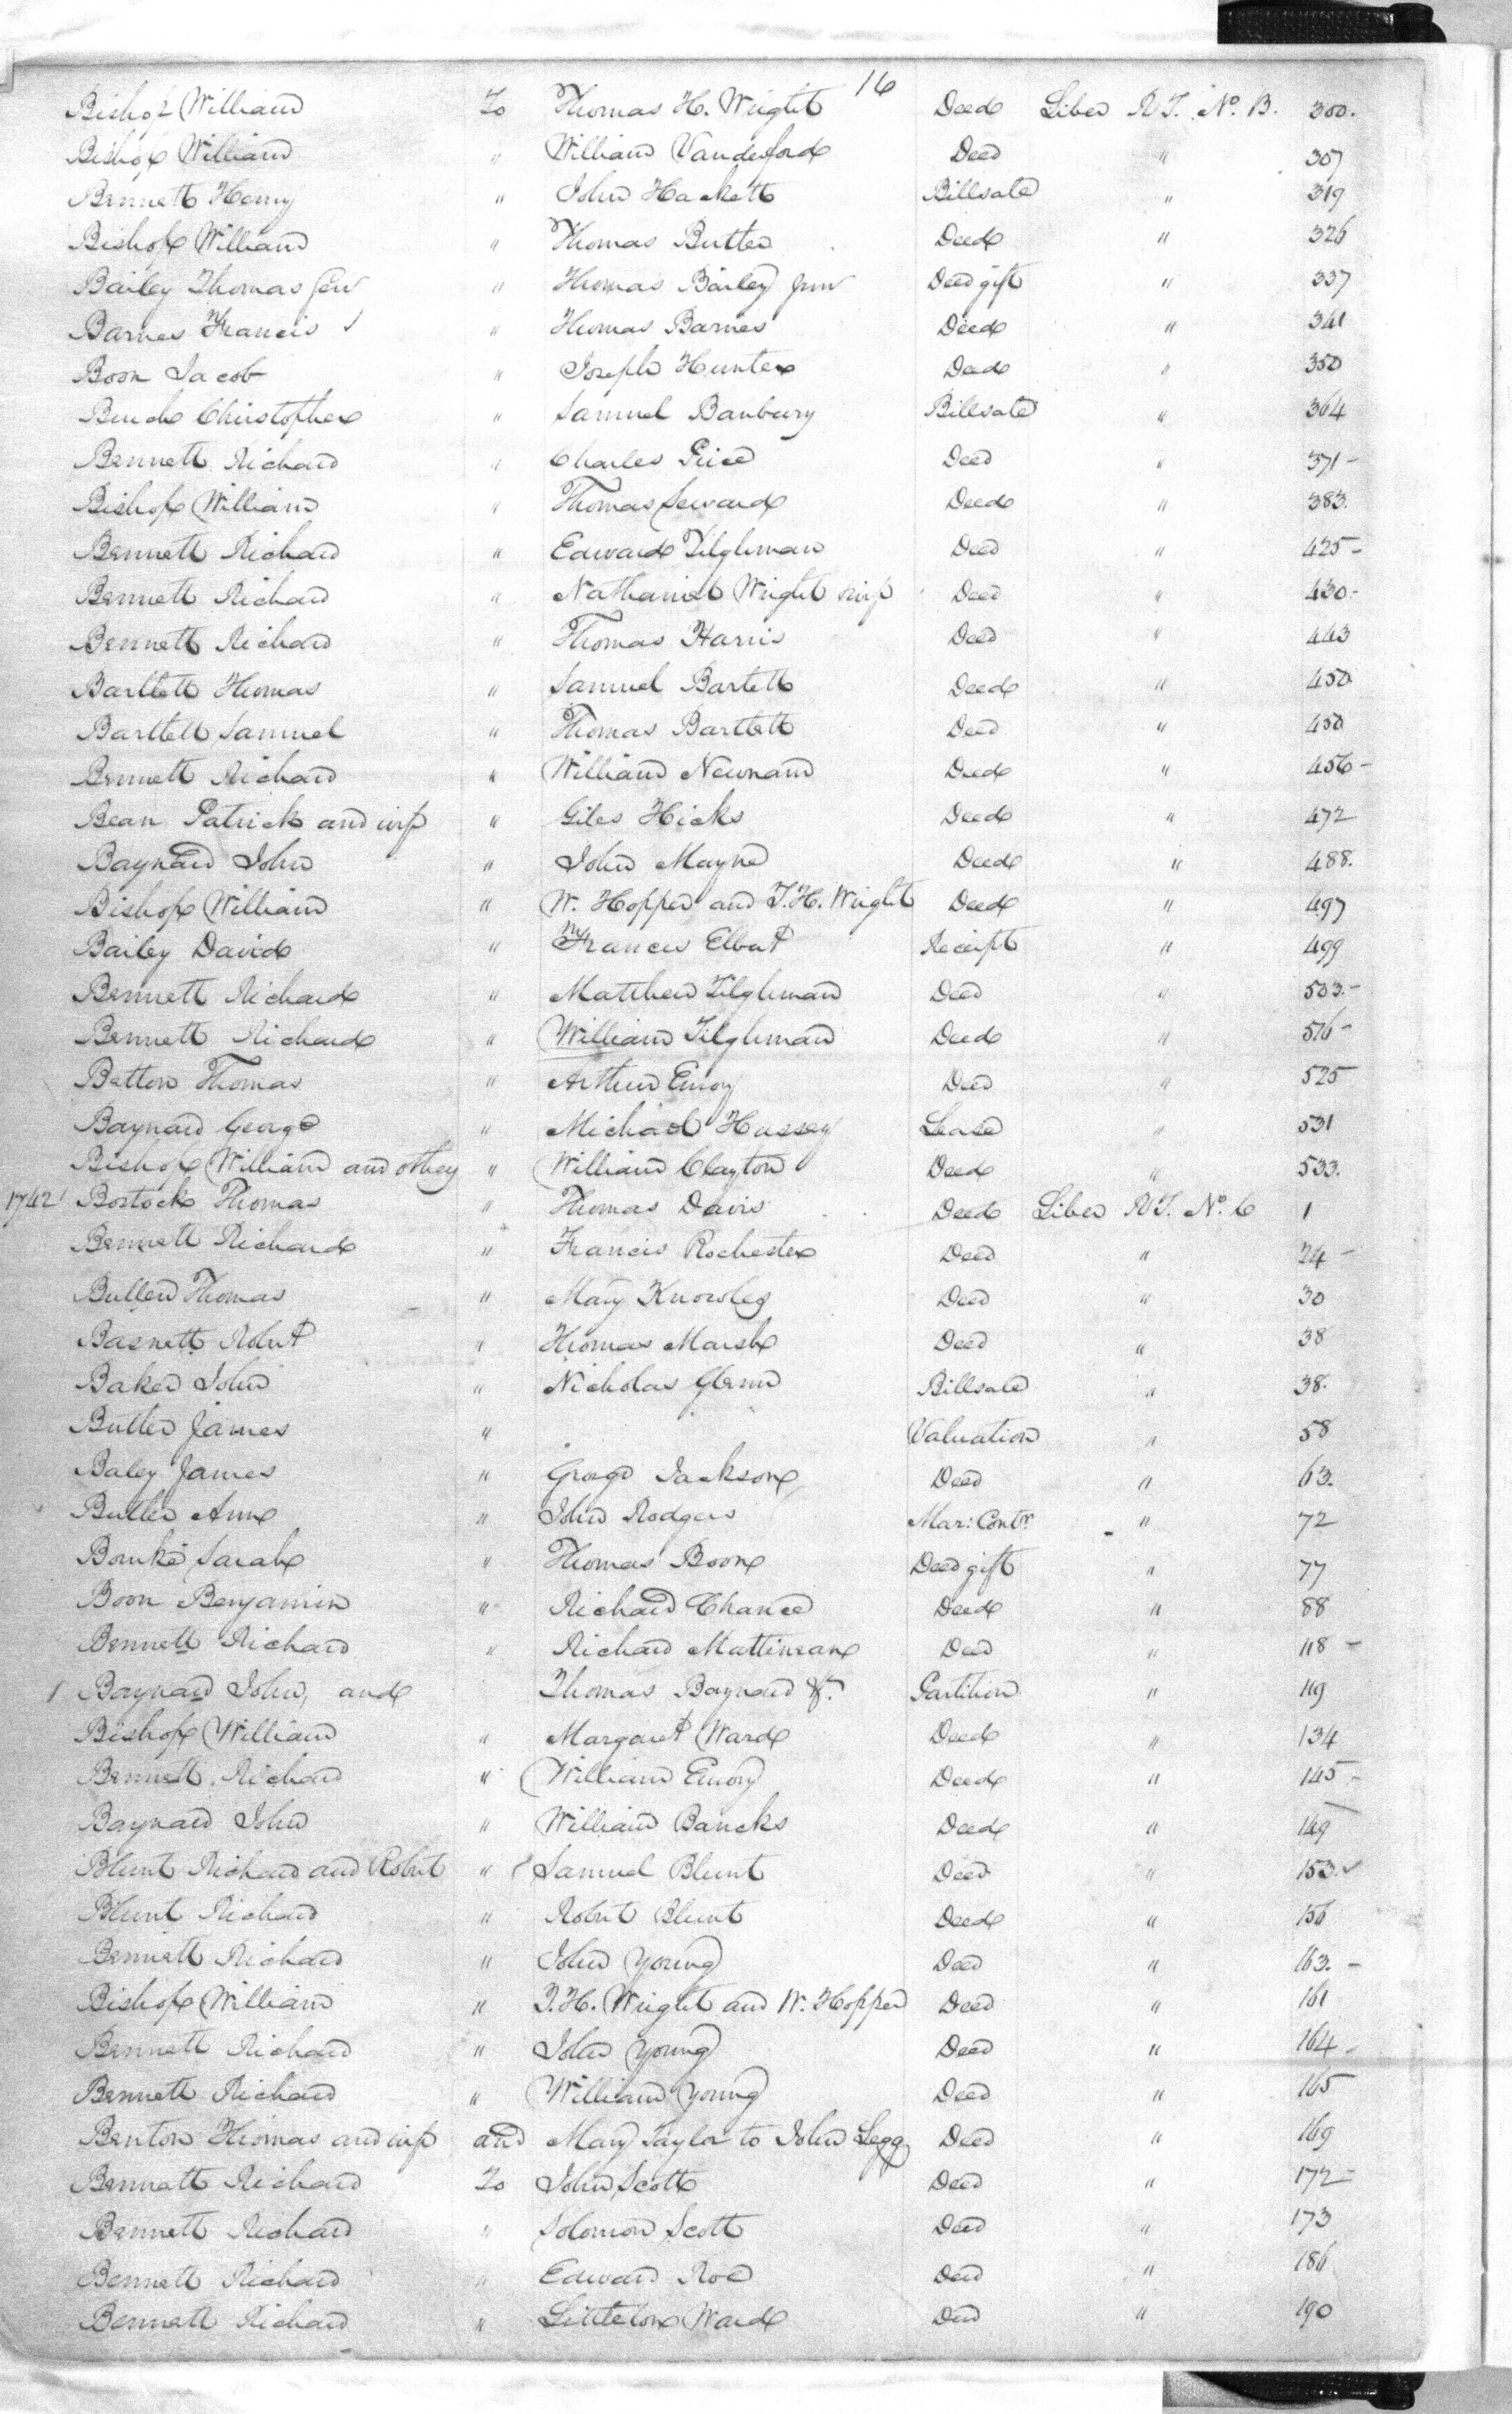 16
Bishop William To Thomas H. Wright Deed Liber RT. No. B. 300.
Bishop William " William Vanderford Deed " 307
Bennett Henry " John Hackett Billsale " 319
Bishop William " Thomas Butler Deed " 326
Bailey Thomas Senr " Thomas Bailey Junr Deed gift " 337
Barnes Francis " Thomas Barnes Deed " 341
Boon Jacob " Joseph Hunter Deed " 350
Christopher " Samuel Banbury Billsale " 364
Bennett Richard " Charles Price Deed " 371
Bishop William " Thomas Seward Deed " 383.
Bennett Richard " Edward Tilghman Deed " 425
Bennett Richard " Nathaniel Wright Deed " 430
Bennett Richard " Thomas Harris Deed " 443
Bartlett Thomas " Samuel Bartlett Deed " 450
Bartlett Samuel " Thomas Bartlett Deed " 450
Bennett Richard " William Newnam Deed " 456
Bean Patrick and wife " Giles Hicks Deed " 472
Baynard John " John Mayne Deed " 488.
Bishop William " W. Hopper and T. H. Wright Deed " 497
Bailey David " Francis Elbert Receipt " 499
Bennett Richard " Matthew Tilghman Deed " 503.
Bennett Richard " William Tilghman Deed " 516
Betton Thomas " Arthur Emory Deed " 525
Baynard George " Michael Hussey Lease " 531
Bishop William and others " William Clayton Deed " 533.
1742 Bostock Thomas " Thomas Davis Deed Liber RT. No. C 1
Bennett Richard " Francis Rochester Deed " 24
Bullen Thomas " Mary Knowles Deed " 30
Basnett Robert " Thomas Marsh Deed " 38
Baker John " Nicholas Glenn Billsale " 38.
Butler James " Valuation " 58
Baley James " George Jackson Deed " 63.
Butler Ann " John Rodgers Mar: Contr. " 72
Bourke Sarah " Thomas Boon Deed gift " 77
Boon Benjamin " Richard Chance Deed " 88
Bennett Richard " Richard Mattinean Deed " 118
Baynard John, and Thomas Baynard &c. Partition " 119
Bishop William " Margaret Ward Deed " 134
Bennett Richard " William Emory Deed " 145
Baynard John " William Bancks Deed " 149
Blunt Richard and Robert " Samuel Blunt Deed " 153.
Blunt Richard " Robert Blunt Deed " 156
Bennett Richard " John Young Deed " 163.
Bishop William " T. H. Wright and W. Hopper Deed " 161
Bennett Richard " John Young Deed " 164
Bennett Richard " William Young Deed " 165
Benton Thomas and wife and Mary Taylor to John Legg Deed " 169
Bennett Richard To John Scott Deed " 172
Bennett Richard " Solomon Scott Deed " 173
Bennett Richard " Edward Roe Deed " 186
Bennett Richard " Littleton Ward Deed " 190